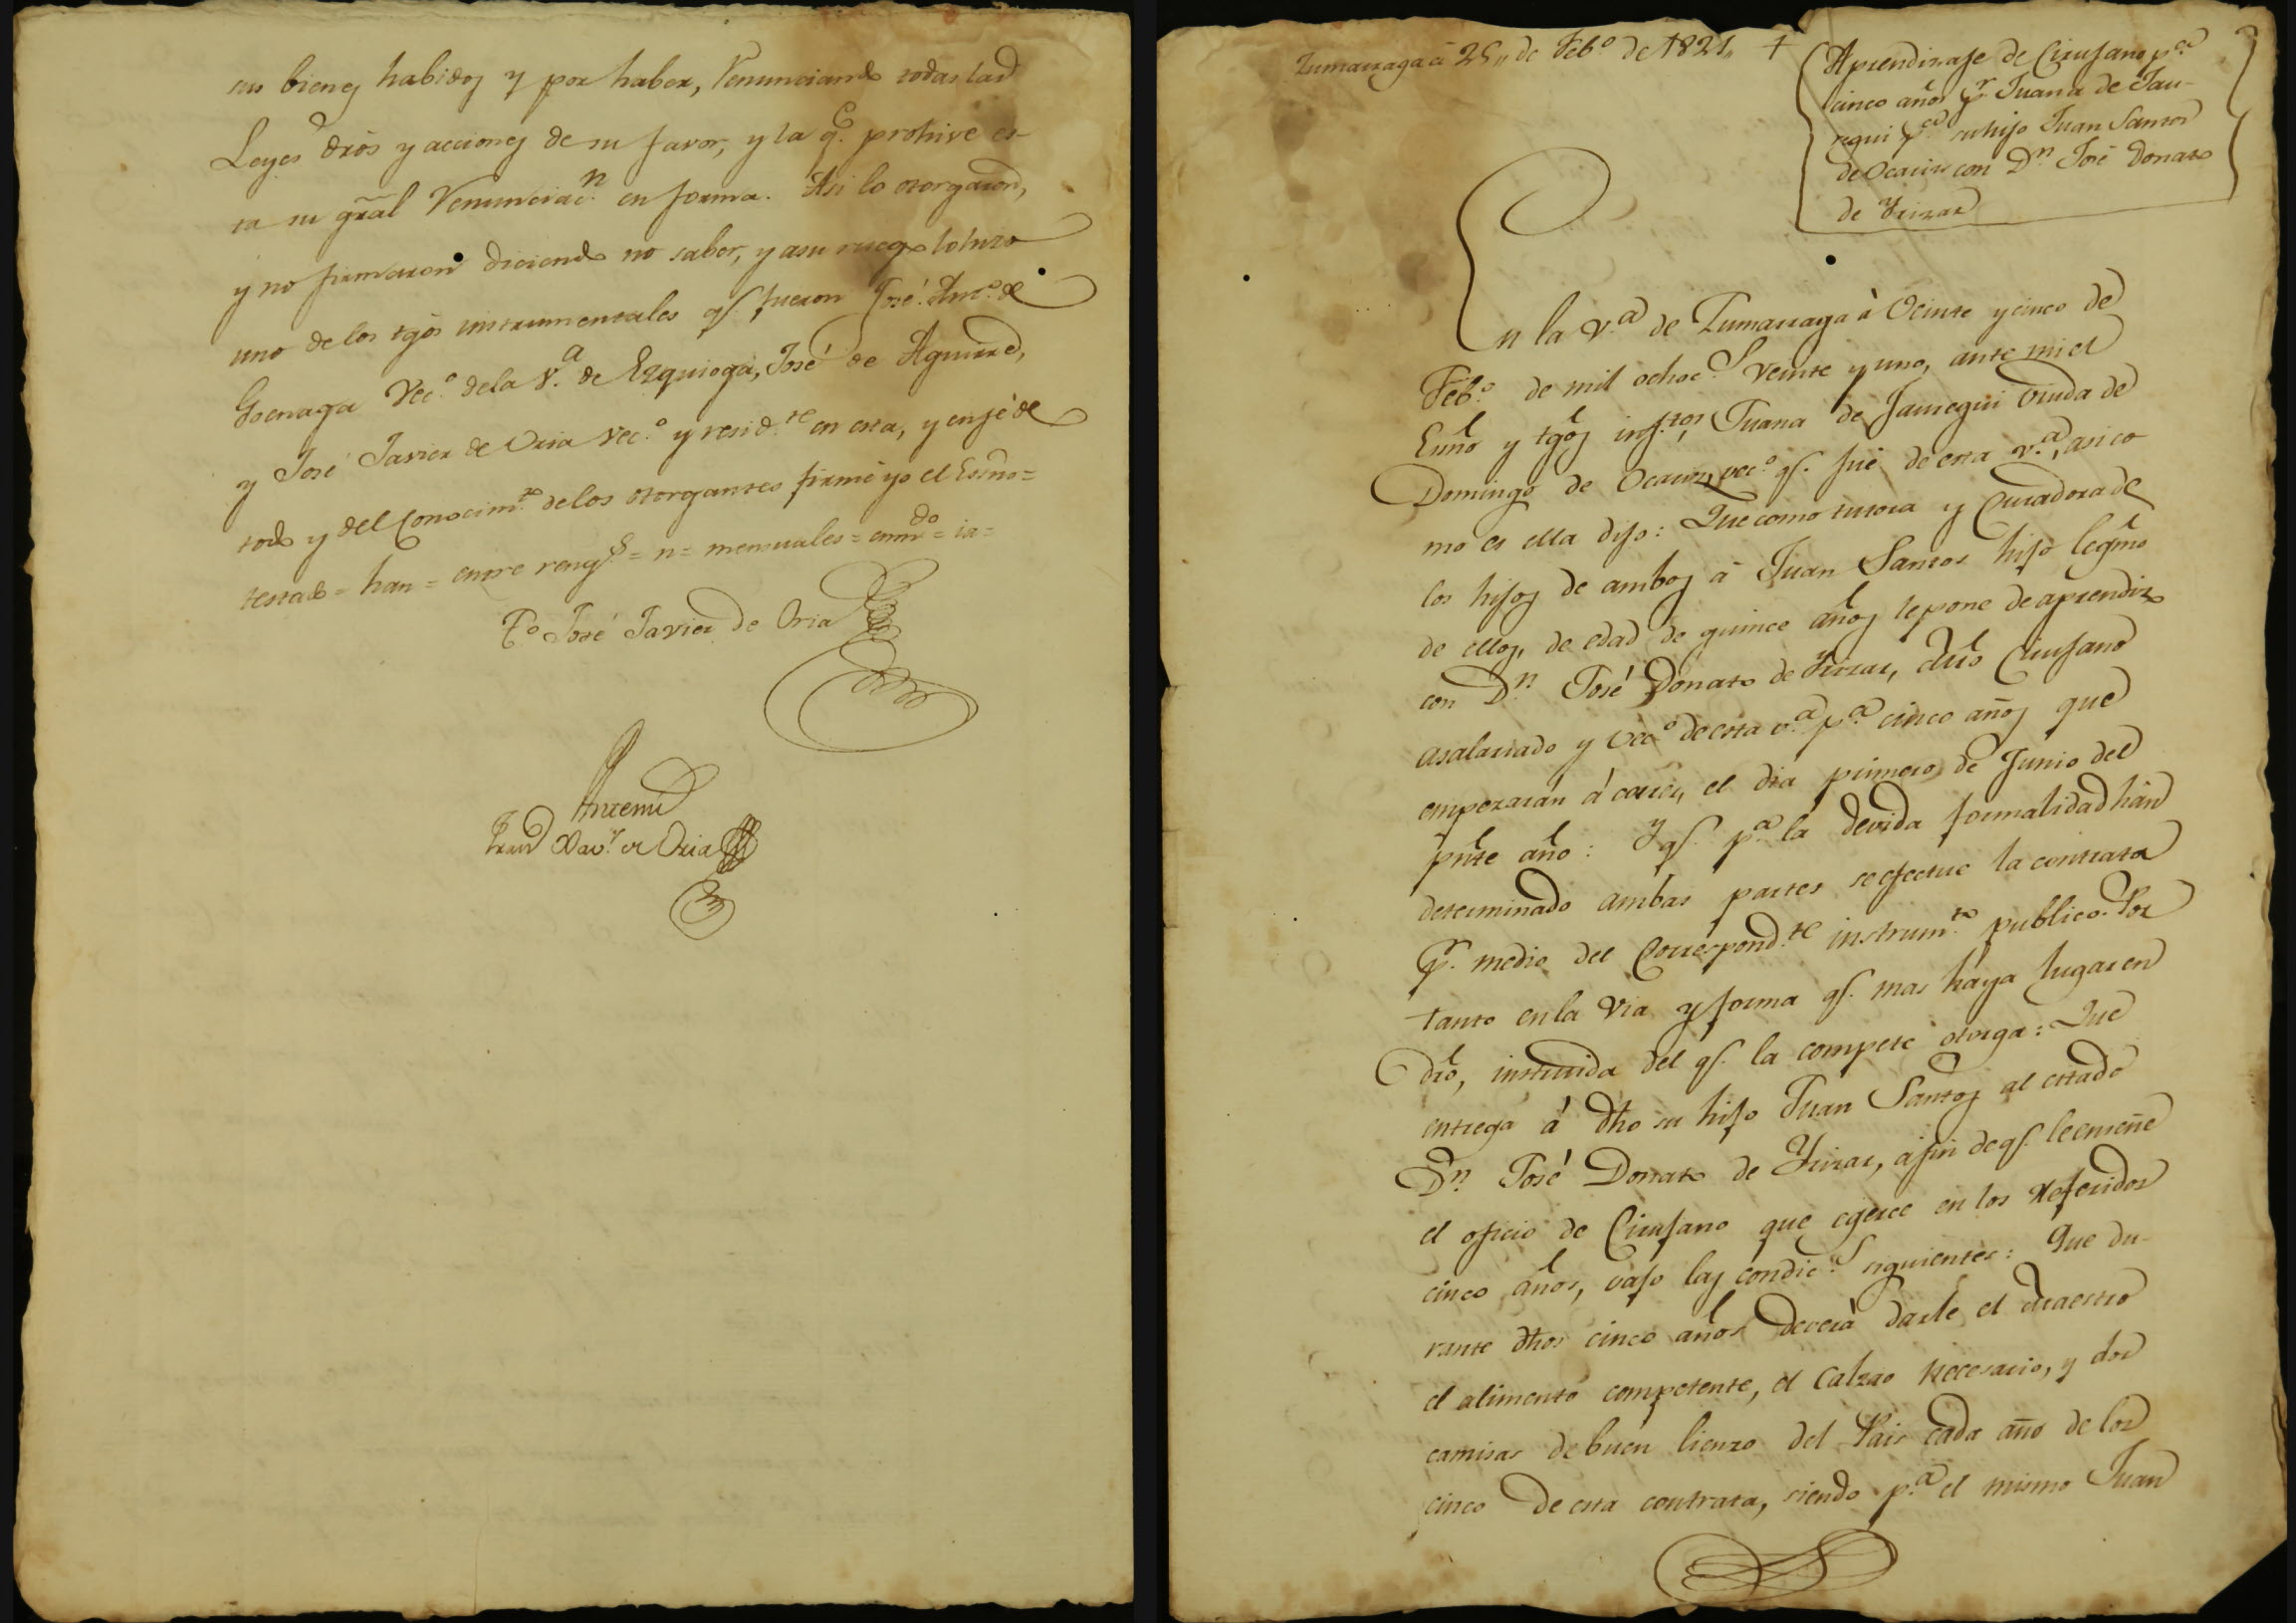 sus bienes habidos y por haber, renunciando todas las
Leyes dr̃os y acciones de su favor, y la q.e prohive es-
ta su gr̃al renunciac.n en forma. Asi lo otorgaron,
y no firmaron diciendo no saber, y a su ruego lo hizo
uno de los tgõs instrumentales q.e fueron José Ant.o de
Goenaga vec.o de la v.a de Ezquioga, José de Aguirre,
y José Javier de Oria vec.o y resid.te en esta, y en fé de
todo y del conocim.to de los otorgantes firmé yo el Esño=
testado = han = entre reng.s = n = mensuales = enmdo = ia =
T.o José Javier de Oria
Antemi
Fran.co Xav.r de Oria
Zumarraga á 25,, de Feb.o de 1821,, +
Aprendizaje de Cirujano p.a
cinco años p.r Juana de Jau-
regui p.a su hijo Juan Santos
de Ocariz con D.n José Donato
de Yrizar
En la v.a de Zumarraga á veinte y cinco de
Feb.o de mil ochoc.s veinte y uno, ante mi el
Esño y tgõs ins.tos Juana de Jauregui viuda de
Domingo de Ocariz, vec.o q.e fué de esta v.a, asi co
mo es ella dijo: Que como tutora y curadora de
los hijos de ambos á Juan Santos hijo legm̃o
de ellos, de edad de quince años le pone de aprendiz
con D.n José Donato de Yrizar, Mr̃o Cirujano
asalariado y vec.o de esta v.a p.a cinco años que
empezarán á correr, el dia primero de Junio del
pñte año: Y q.e p.a la devida formalidad hán
determinado ambas partes se efectue la contrata
p.r medio del correspond.te instrum.to publico. Por
tanto en la via y forma q.e mas haya lugar en
dr̃o, instruida del q.e la compete otorga: Que
entrega á dho su hijo Juan Santos al citado
D.n José Donato de Yrizar, á fin de q.e le enseñe
el oficio de Cirujano que egerce en los referidos
cinco años, vajo las condic.s siguientes: Que du-
rante dhos cinco años deverá darle el Maestro
el alimento competente, el calzao necesario, y dos
camisas de buen lienzo del Pais cada año de los
cinco de esta contrata, siendo p.a el mismo Juan